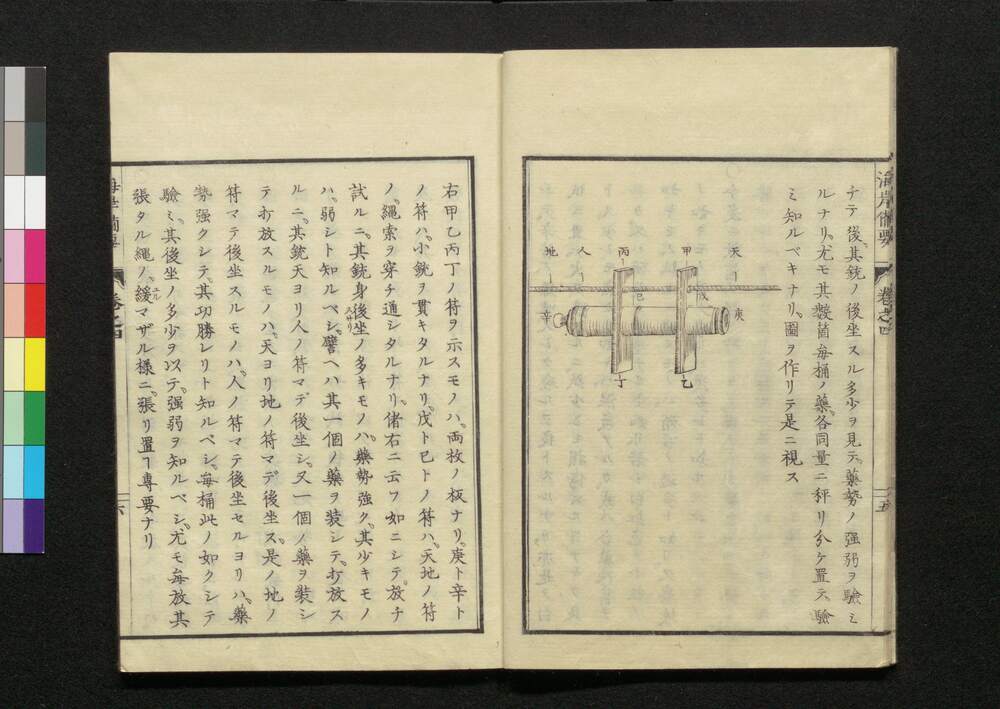 海岸備要
卷之四
五
チテ後、其銃ノ後坐スル多少ヲ見テ、藥勢ノ強弱ヲ驗ミ
ルナリ、尤モ其數箇每桶ノ藥、各同量ニ秤リ分ケ置テ驗
ミ知ルベキナリ、圖ヲ作リテ是ニ視ス
天
甲
丙
人
地
戊
己
庚
辛
乙
丁
右甲乙丙丁ノ符ヲ示スモノハ、両枚ノ板ナリ、庚ト辛ト
ノ符ハ、小銃ヲ貫キタルナリ、戊ト巳トノ符ハ、天地ノ符
ノ、繩索ヲ穿チ通シタルナリ、偖右ニ云フ如ニシテ、放チ
試ルニ、其銃身後坐ノ多キモノハ、藥勢強ク、其少キモノ
ハ、弱シト知ルベシ、譬ヘハ其一個ノ藥ヲ装シテ、打放ス
ルニ、其銃天ヨリ人ノ符マデ後坐シ、又一個ノ藥ヲ装シ
テ打放スルモノハ、天ヨリ地ノ符マデ後坐ス、是ノ地ノ
符マテ後坐スルモノハ、人ノ符マテ後坐セルヨリハ、藥
勢強クシテ、其功勝レリト知ルベシ、每桶此ノ如クシテ
驗ミ、其後坐ノ多少ヲ以テ、强弱ヲ知ルベシ、尤モ每放其
張タル繩ノ、緩マザル様ニ、張リ置ヿ專要ナリ
卷之四
六